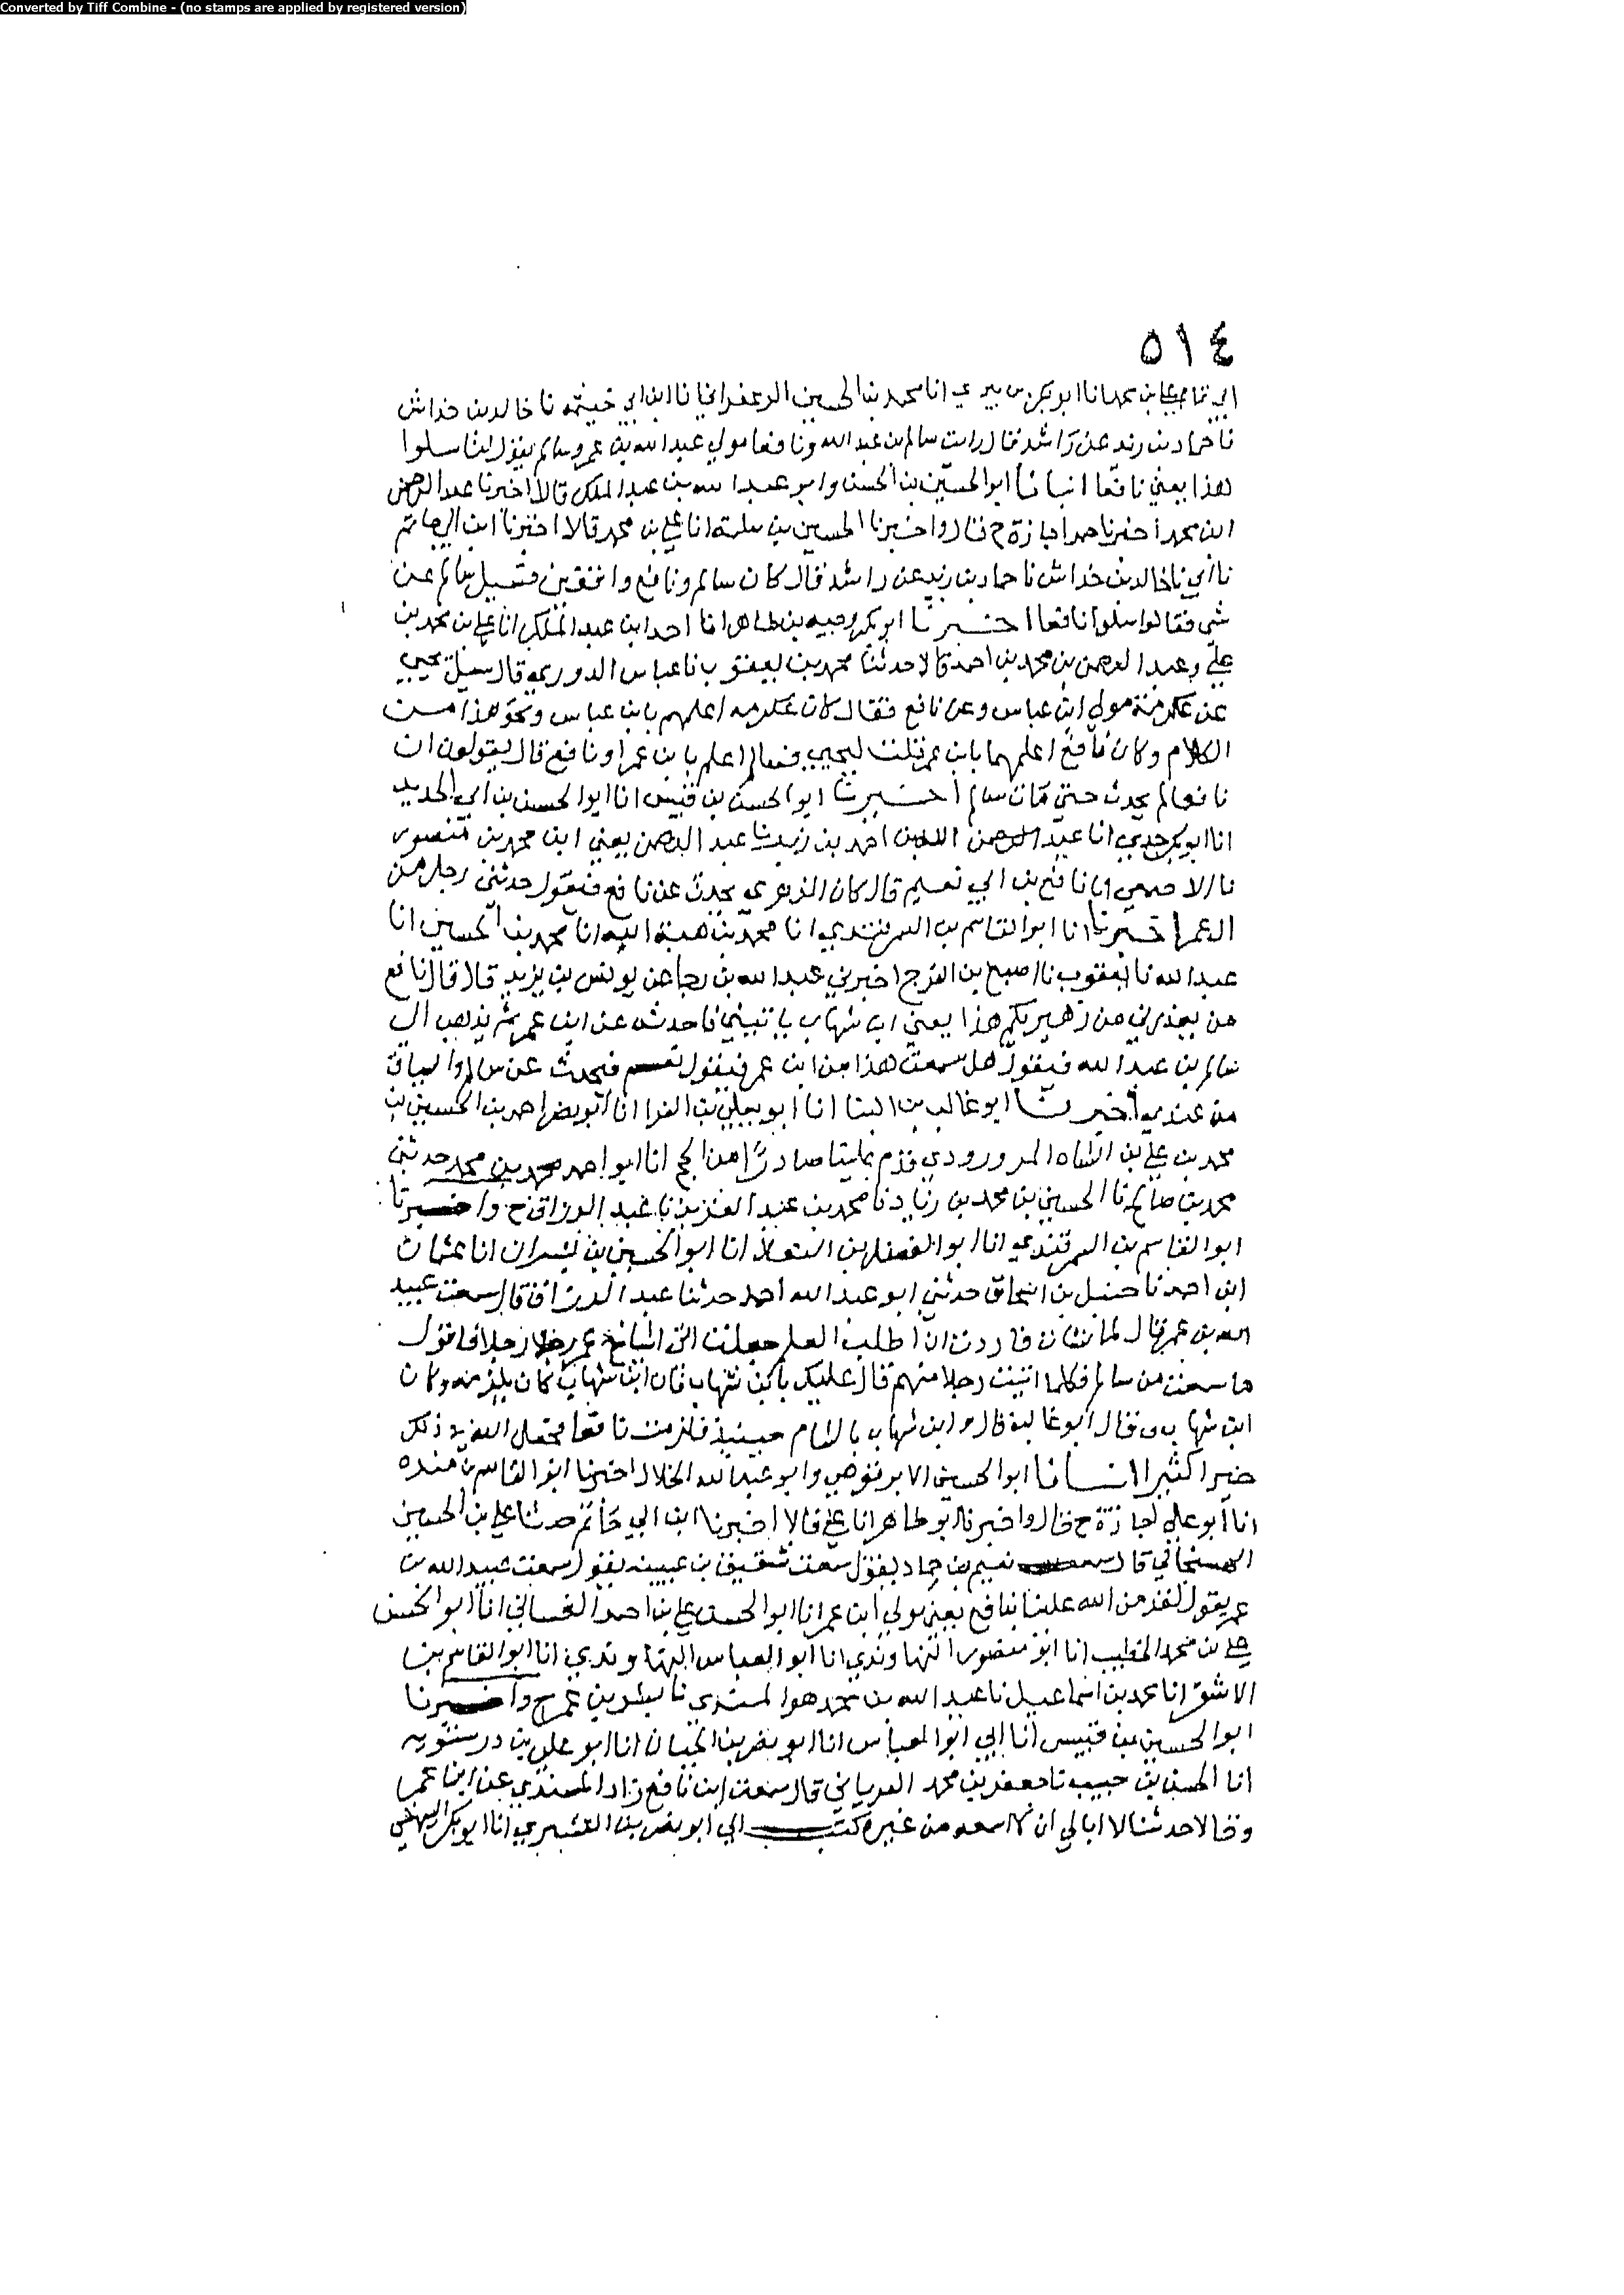 Converted by Tiff Combine - (no stamps are applied by registered version)
٥١٤
ابي تمام علي بن محمد انا ابو بكر بن بيري انا محمد بن الحسين الزعفراني نا ابن ابي خيثمة نا خالد بن خداش
نا حماد بن زيد عن راشد قال رايت سالم بن عبد الله ونافعا مولي عبد الله بن عمر وسالم يقول لنا سلوا
هذا يعني نافعا انبانا ابو الحسين بن الحسن وابو عبد الله بن عبد الملك قالا اخبرنا عبد الرحمن
ابن محمد اخبرنا حمد اجازة ح قال واخبرنا الحسين بن سلمة انا علي بن محمد قالا اخبرنا ابن ابي حاتم
نا ابي نا خالد بن خداش نا حماد بن زيد عن راشد قال كان سالم ونافع واقفين فسيل سالم عن
شي فقالوا سلوا نافعا اخبرنا ابو بكر وجيه بن طاهر انا احمد بن عبد الملك انا علي بن محمد بن
علي وعبد الرحمن بن محمد بن احمد قالا حدثنا محمد بن يعقوب نا عباس الدوري قال سيل يحيي
عن عكرمة مولي ابن عباس وعن نافع فقال كان عكرمه اعلمهم بابن عباس ونحو هذا من
الكلام وكان نافع اعلمهما بابن عمر قلت ليحيي فسالم اعلم بابن عمر او نافع قال يقولون ان
نافعا لم يحدث حتي مات سالم اخبرنا ابو الحسن بن قبيس انا ابو الحسن بن ابي الحديد
انا ابو بكر جدي انا عبد الرحمن احمد بن زيد نا عبد الرحمن يعني ابن محمد بن منصور
نا الاصمعي نا نافع بن ابي نعيم قال كان الزهري يحدث عن نافع فيقول حدثني رجل من
ال عمر اخبرنا ابو القاسم بن السمرقندي انا محمد بن هبة الله انا محمد بن الحسين انا
عبد الله نا يعقوب نا اصبع بن الفرج اخبرني عبد الله بن رجا عن يونس بن يزيد قال قال نافع
من يعذرني من زهيريكم هذا يعني ابن شهاب ياتيني فاحدثه عن ابن عمر ثم يذهب الي
سالم بن عبد الله فيقول هل سمعت هذا من ابن عمر فيقول نعم فيحدث عن سالم والسياق
من عندي اخبرنا ابو غالب بن البنا انا ابو يعلي بن الفرا انا ابو نصر احمد بن الحسين بن
محمد بن علي بن الشاه المروروذي قدم علينا صادرا من الحج انا ابو احمد محمد بن محمد حدثني
محمد بن صالح نا الحسين بن محمد بن زياد نا محمد بن عبد العزيز نا عبد الرزاق ح واخبرنا
ابو القاسم بن السمرقندي انا ابو الفضل بن البقال انا ابو الحسين بن بشران انا عثمان
ابن احمد نا حنبل بن اسحاق حدثني ابو عبد الله احمد حدثنا عبد الرزاق قال سمعت عبيد
الله بن عمر قال لما نشات فاردت ان اطلب العلم جعلت اتي اشياخ ال عمر رجلا رجلا فاقول
ما سمعت من سالم فكلما اتيت رجلا منهم قال عليك بابن شهاب فان ابن شهاب كان يلزمه وكان
ابن شهاب وقال ابو غالب قال وابن شهاب بالشام حينيذ فلزمت نافعا فجعل الله في ذلك
خيرا كثيرا انبانا ابو الحسين الابرقوهي وابو عبد الله الخلال اخبرنا ابو القاسم بن منده
انا ابو علي اجازة ح قال واخبرنا ابو طاهر انا علي قالا اخبرنا ابن ابي حاتم حدثنا علي بن الحسين
الهسنجاني قال سمعت نعيم بن حماد يقول سمعت سفيان بن عيينه يقول سمعت عبيد الله بن
عمر يقول لقد من الله علينا بنافع يعني مولي ابن عمر انا ابو الحسن علي بن احمد الغساني انا ابو الحسن
علي بن محمد الخطيب انا ابو منصور النهاوندي انا ابو العباس النهاوندي انا ابو القاسم بن
الاشقر انا محمد بن اسماعيل نا عبد الله بن محمد هو المسندي نا بشر بن عمر ح واخبرنا
ابو الحسين بن قبيس انا ابي ابو العباس انا ابو نصر بن الجبان انا ابو علي بن درستويه
انا الحسن بن حبيب نا جعفر بن محمد الفريابي قال سمعت ابن نافع زاد المسندي عن ابن عمر
وقالا حدثنا لا ابالي ان لا اسمعه من غيره كتب الي ابو نصر بن القشيري انا ابو بكر البيهقي